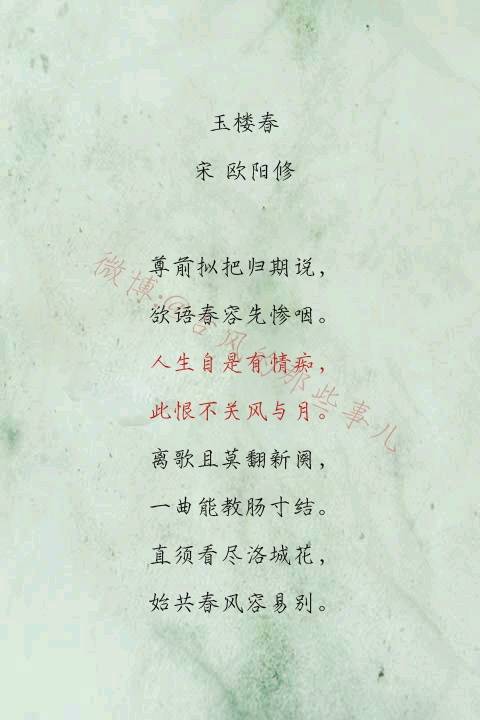 玉楼春
宋 欧阳修
尊前拟把归期说，
欲语春容先惨咽。
人生自是有情痴，
此恨不关风与月。
离歌且莫翻新阕，
一曲能教肠寸结。
直须看尽洛城花，
始共春风容易别。
微博:@古风那些事儿